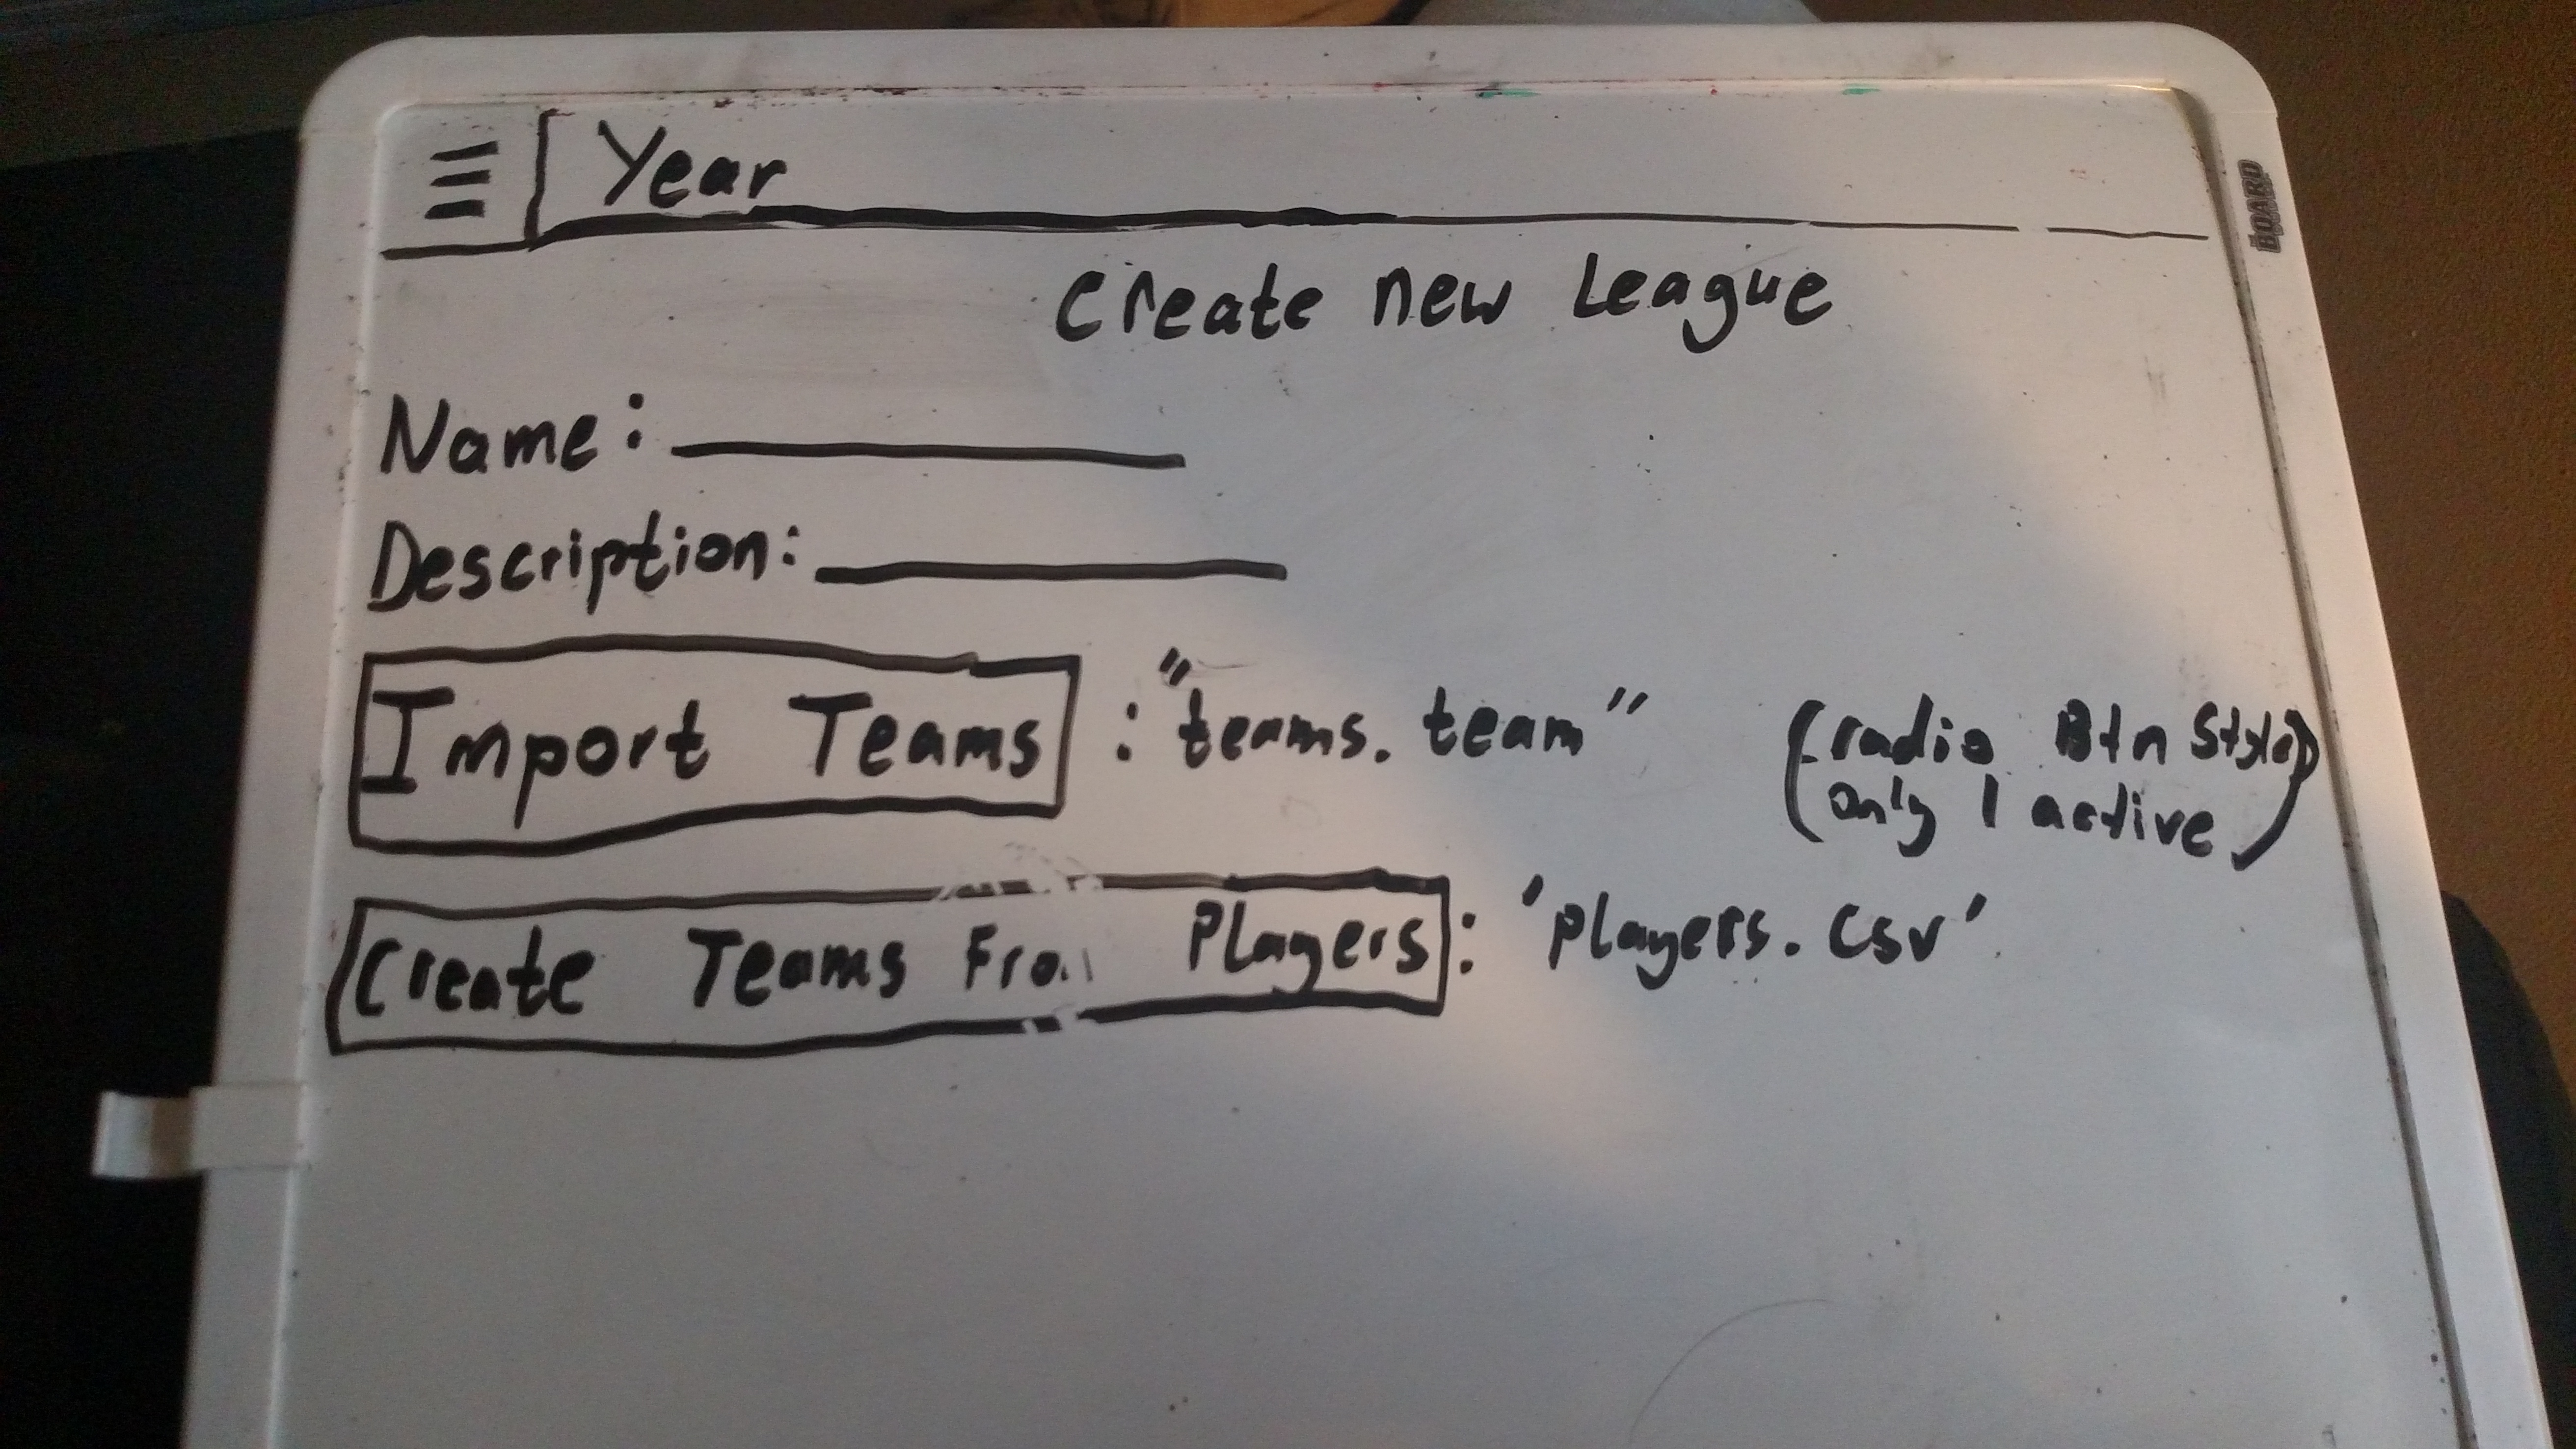 Year
Create new League
Name:
Description:
Import Teams : "teams.team"
(radio Btn Style)
(only 1 active)
Create Teams Fro Players : 'Players.csv'
BOARD